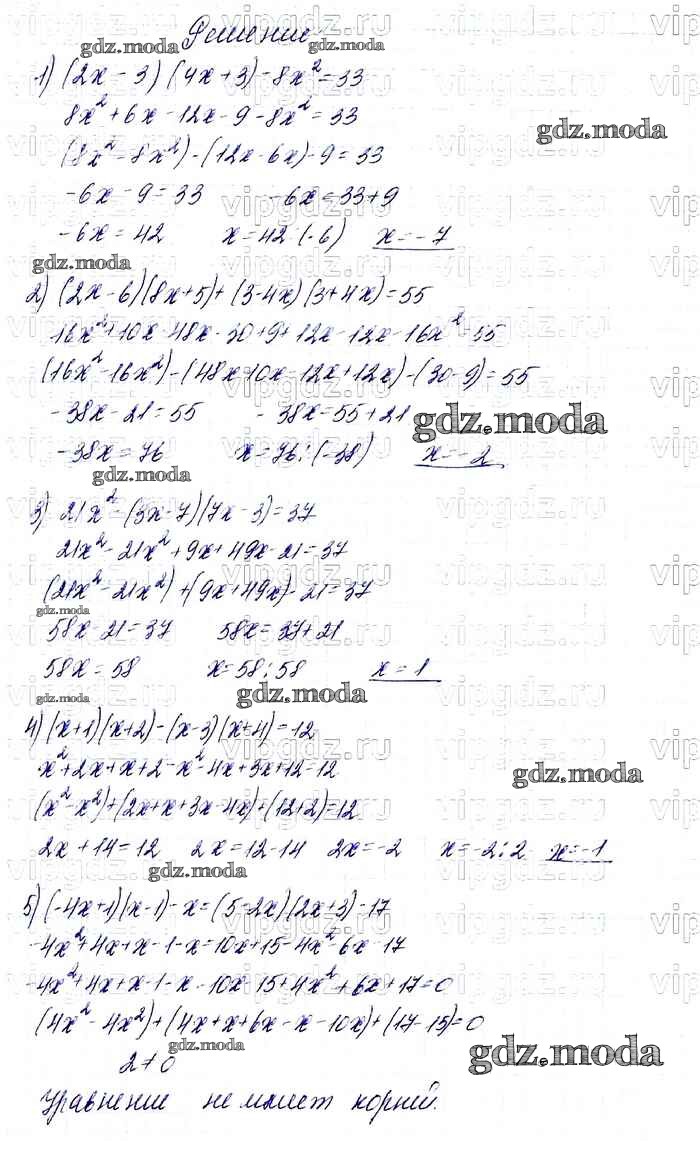 Решение
1) (2x - 3) (4x + 3) - 8x² = 33
8x² + 6x - 12x - 9 - 8x² = 33
(8x² - 8x²) - (12x - 6x) - 9 = 33
-6x - 9 = 33 -6x = 33 + 9
-6x = 42 x = 42 (-6) x = -7
2) (2x - 6)(8x + 5) + (3 - 4x)(3 + 4x) = 55
16x² + 10x - 48x - 30 + 9 + 12x - 12x - 16x² = 55
(16x² - 16x²) - (48x - 10x - 12x + 12x) - (30 - 9) = 55
-38x - 21 = 55 -38x = 55 + 21
-38x = 76 x = 76 : (-38) x = -2
3) 21x² - (3x - 7)(7x - 3) = 37
21x² - 21x² + 9x + 49x - 21 = 37
(21x² - 21x²) + (9x + 49x) - 21 = 37
58x - 21 = 37 58x = 37 + 21
58x = 58 x = 58 : 58 x = 1
4) (x + 1)(x + 2) - (x - 3)(x + 4) = 12
x² + 2x + x + 2 - x² - 4x + 3x + 12 = 12
(x² - x²) + (2x + x + 3x - 4x) + (12 + 2) = 12
2x + 14 = 12 2x = 12 - 14 2x = -2 x = -2 : 2 x = -1
5) (-4x + 1)(x - 1) - x = (5 - 2x)(2x + 3) - 17
-4x² + 4x + x - 1 - x = 10x + 15 - 4x² - 6x - 17
-4x² + 4x + x - 1 - x - 10x - 15 + 4x² + 6x + 17 = 0
(4x² - 4x²) + (4x + x + 6x - x - 10x) + (17 - 15) = 0
2 ≠ 0
Уравнение не имеет корней.
gdz.moda
vipgdz.ru